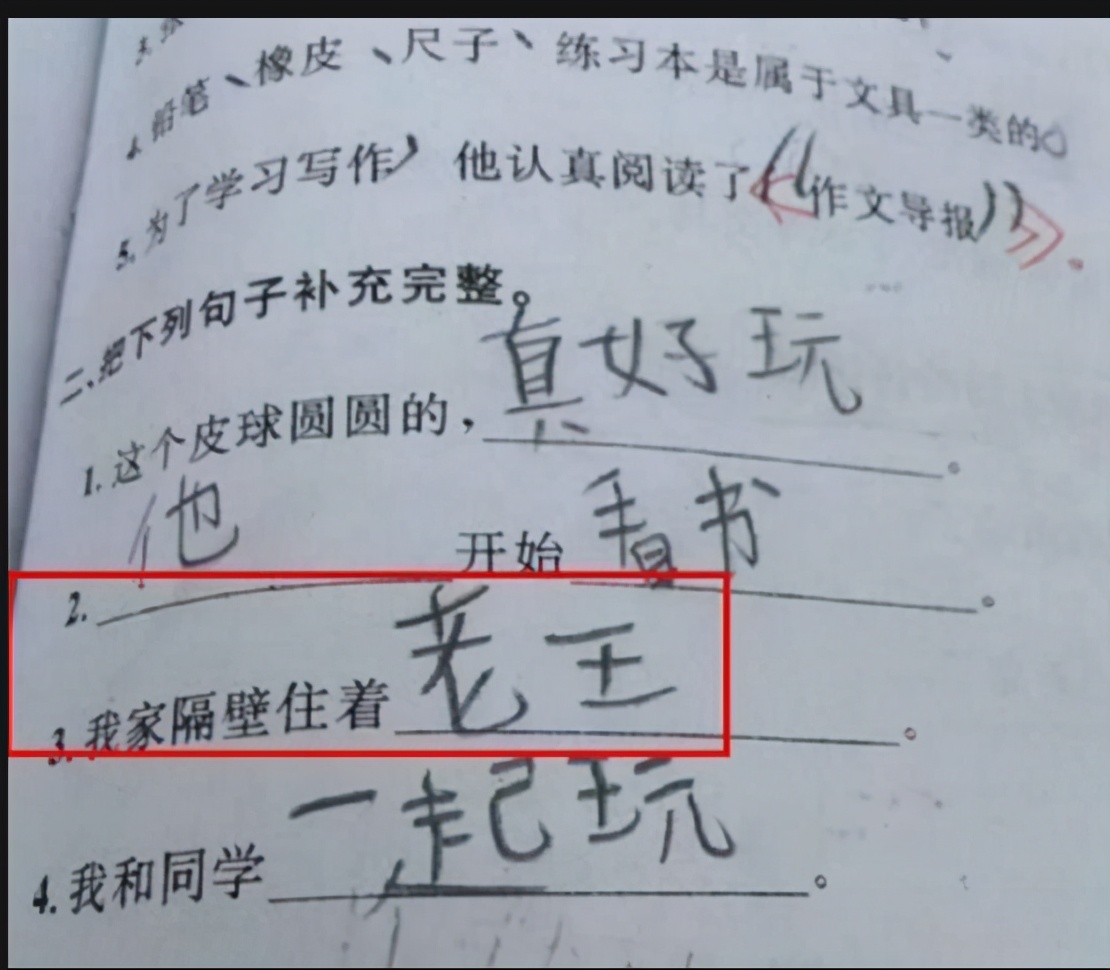 4. 铅笔、橡皮、尺子、练习本是属于文具一类的。
5. 为了学习写作，他认真阅读了《作文导报》.
二、把下列句子补充完整。
1. 这个皮球圆圆的，真好玩。
2. 他开始看书。
3. 我家隔壁住着老王。
4. 我和同学一起玩。